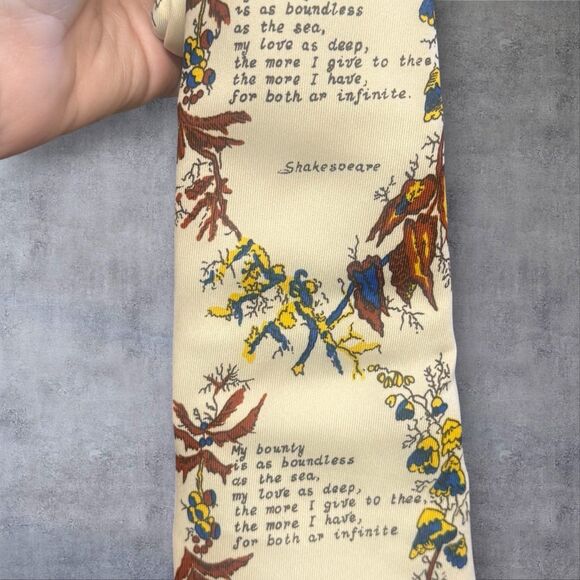 is as boundless
as the sea,
my love as deep,
the more I give to thee,
the more I have,
for both ar infinite.
Shakespeare
My bounty
is as boundless
as the sea,
my love as deep,
the more I give to thee,
the more I have,
for both ar infinite